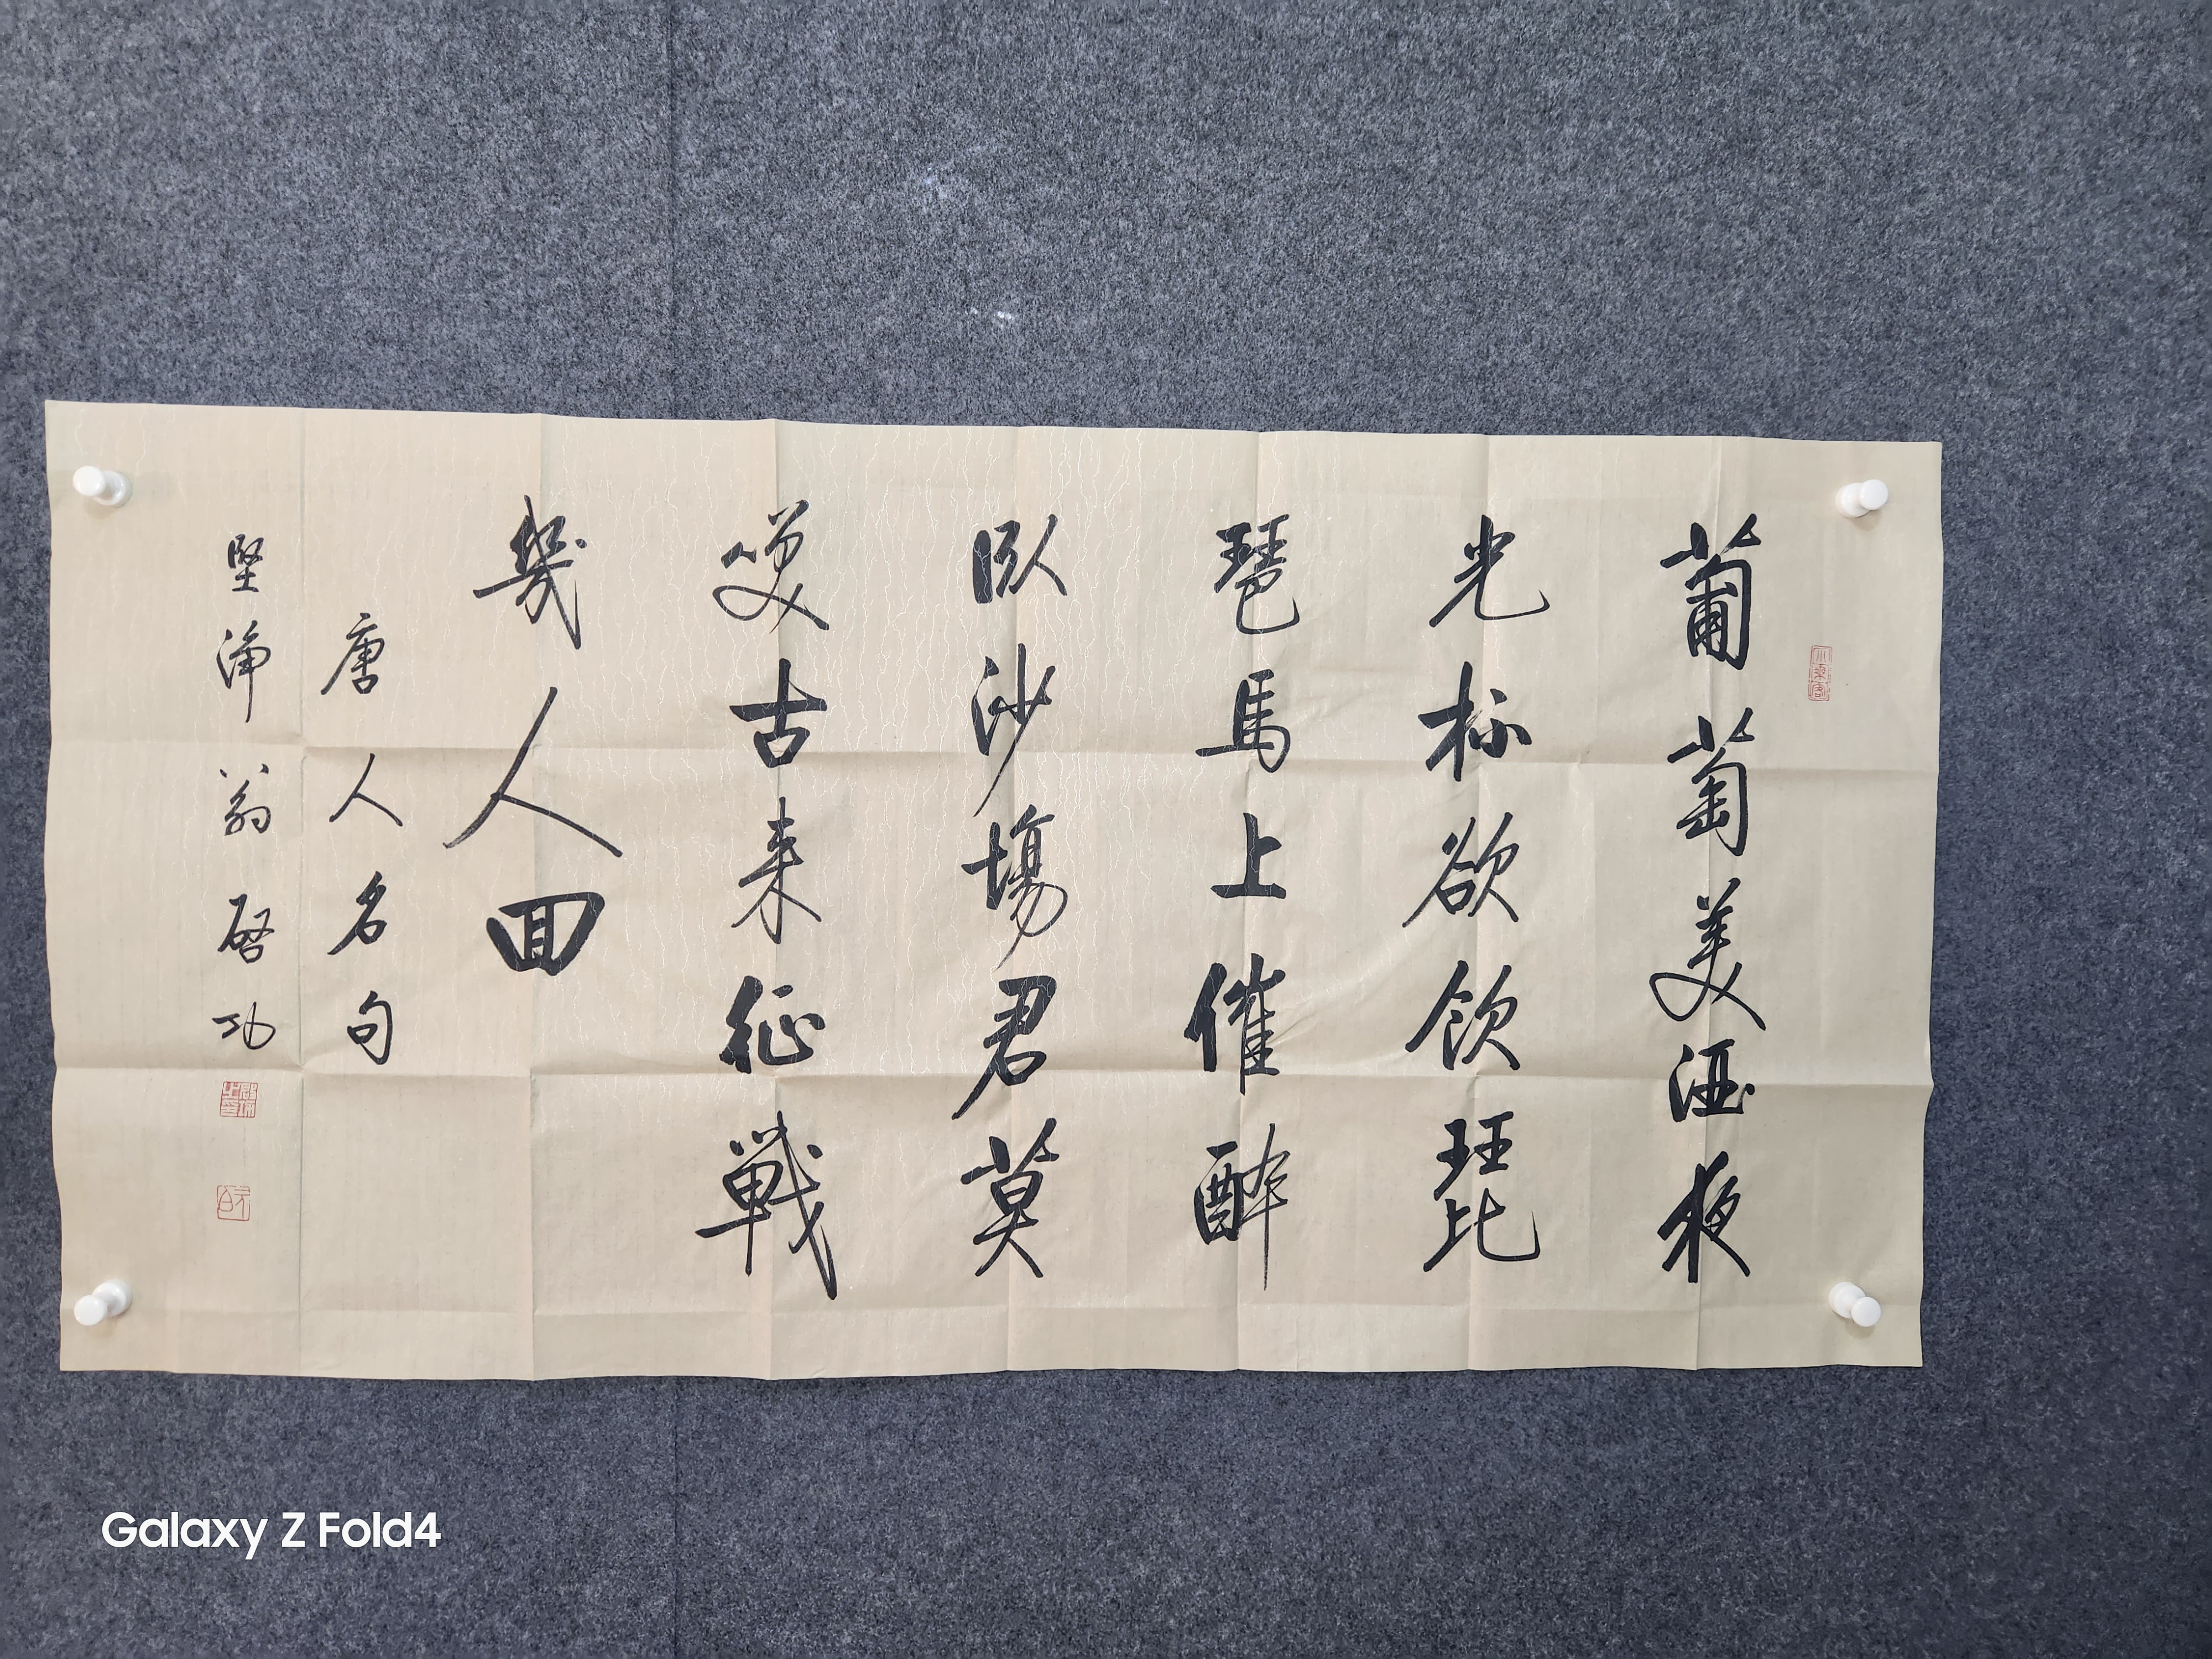 葡萄美酒夜
光杯欲飲琵
琶馬上催醉
臥沙場君莫
笑古来征戰
幾人回
唐人名句
堅淨翁啓功
Galaxy Z Fold4